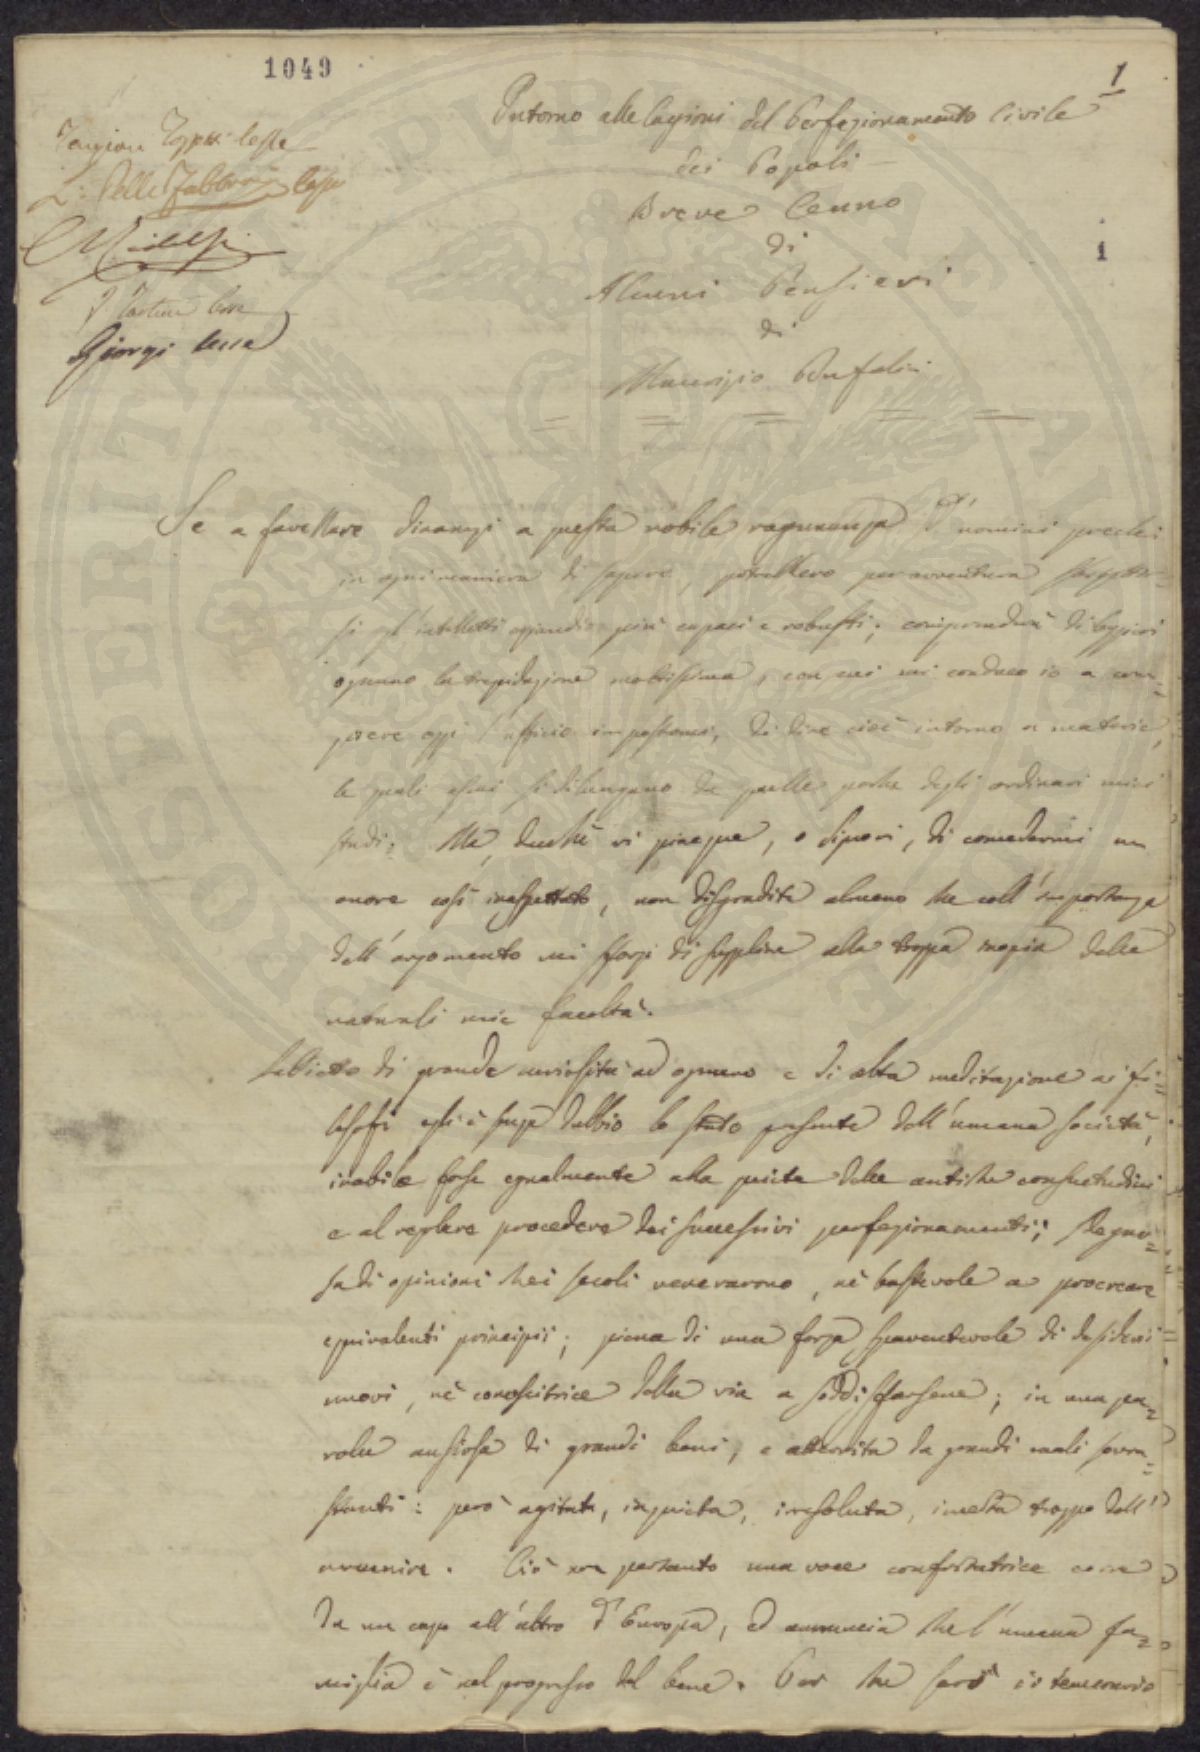 1049
1
Intorno alle Cagioni del Perfezionamento Civile
dei Popoli
Breve Cenno
di
1
Alcuni Pensieri
di
Maurizio Bufalini
L. Delle Fabbroni
Giorgi
Se a favellare dinanzi a questa nobile ragunanza d'uomini preclari
in ogni maniera di sapere, potrebbero per avventura
gl'intelletti eziandio più capaci e robusti; comprenderà di leggieri
ognuno la trepidazione moltissima, con cui mi conduco io a com=
piere oggi l'ufficio impostomi, di dire cioè intorno a materie,
le quali assai si dilungano da quelle poche degli ordinari miei
studi. Ma, dacchè vi piacque, o Signori, di concedermi un
onore così inaspettato, non disgradite almeno che coll'importanza
dell'argomento mi sforzi di supplire alla troppa inopia delle
naturali mie facoltà.
Subietto di grande curiosità ad ognuno e di alta meditazione ai fi=
losofi egli è senza dubbio lo stato presente dell'umana società,
inabile forse egualmente alla quiete delle antiche consuetudini
e al regolare procedere dei successivi perfezionamenti;
di opinioni che i secoli venerarono, nè bastevole a procreare
equivalenti principii; piena di una forza spaventevole di desiderii
nuovi, nè conoscitrice della via a soddisfarsene; in una pa=
rola ansiosa di grandi beni, e atterrita da grandi mali sovra=
stanti: però agitata, inquieta, irresoluta, incerta troppo dell'
avvenire. Ciò non pertanto una voce confortatrice corre
da un capo all'altro d'Europa, ed annuncia che l'umana fa=
miglia è nel progresso del bene. Per che sarò io temerario